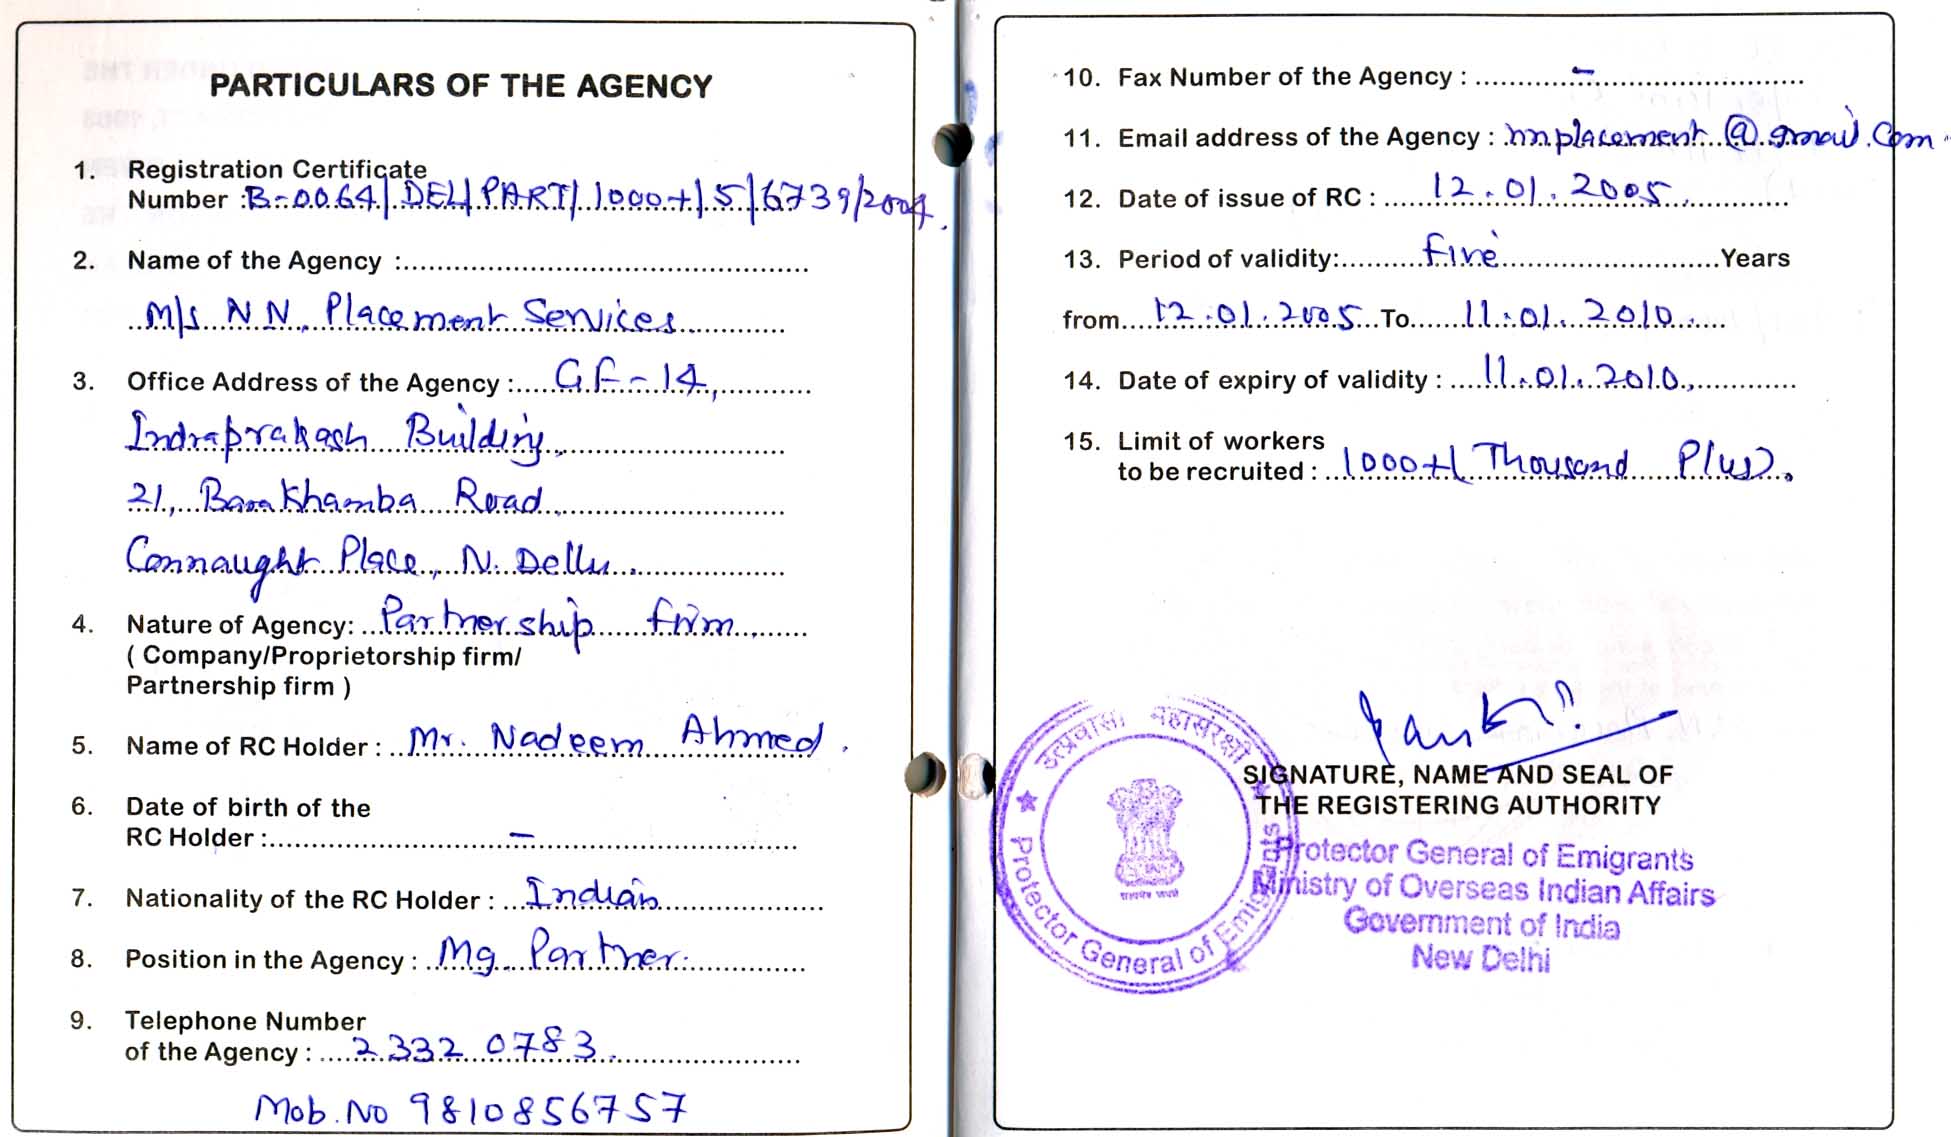 PARTICULARS OF THE AGENCY
1. Registration Certificate
Number : B-0064/DEL/PART/1000+/5/6739/2004.
2. Name of the Agency :
M/s N N. Placement Services
3. Office Address of the Agency : GF-14,
Indraprakash Building,
21, Barakhamba Road
Connaught Place, N. Delhi.
4. Nature of Agency: Partnership firm.
( Company/Proprietorship firm/
Partnership firm )
5. Name of RC Holder : Mr. Nadeem Ahmed.
6. Date of birth of the
RC Holder : –
7. Nationality of the RC Holder : Indian
8. Position in the Agency : Mg. Partner.
9. Telephone Number
of the Agency : 2332 0783.
Mob. No 9810856757
10. Fax Number of the Agency : –
11. Email address of the Agency : nnplacement@gmail.com.
12. Date of issue of RC : 12.01.2005.
13. Period of validity: Five Years
from 12.01.2005 To 11.01.2010.
14. Date of expiry of validity : 11.01.2010.
15. Limit of workers
to be recruited : 1000+( Thousand Plus).
SIGNATURE, NAME AND SEAL OF
THE REGISTERING AUTHORITY
Protector General of Emigrants
Ministry of Overseas Indian Affairs
Government of India
New Delhi
उत्प्रवासी महासंरक्षी
Protector General of Emigrants
सत्यमेव जयते